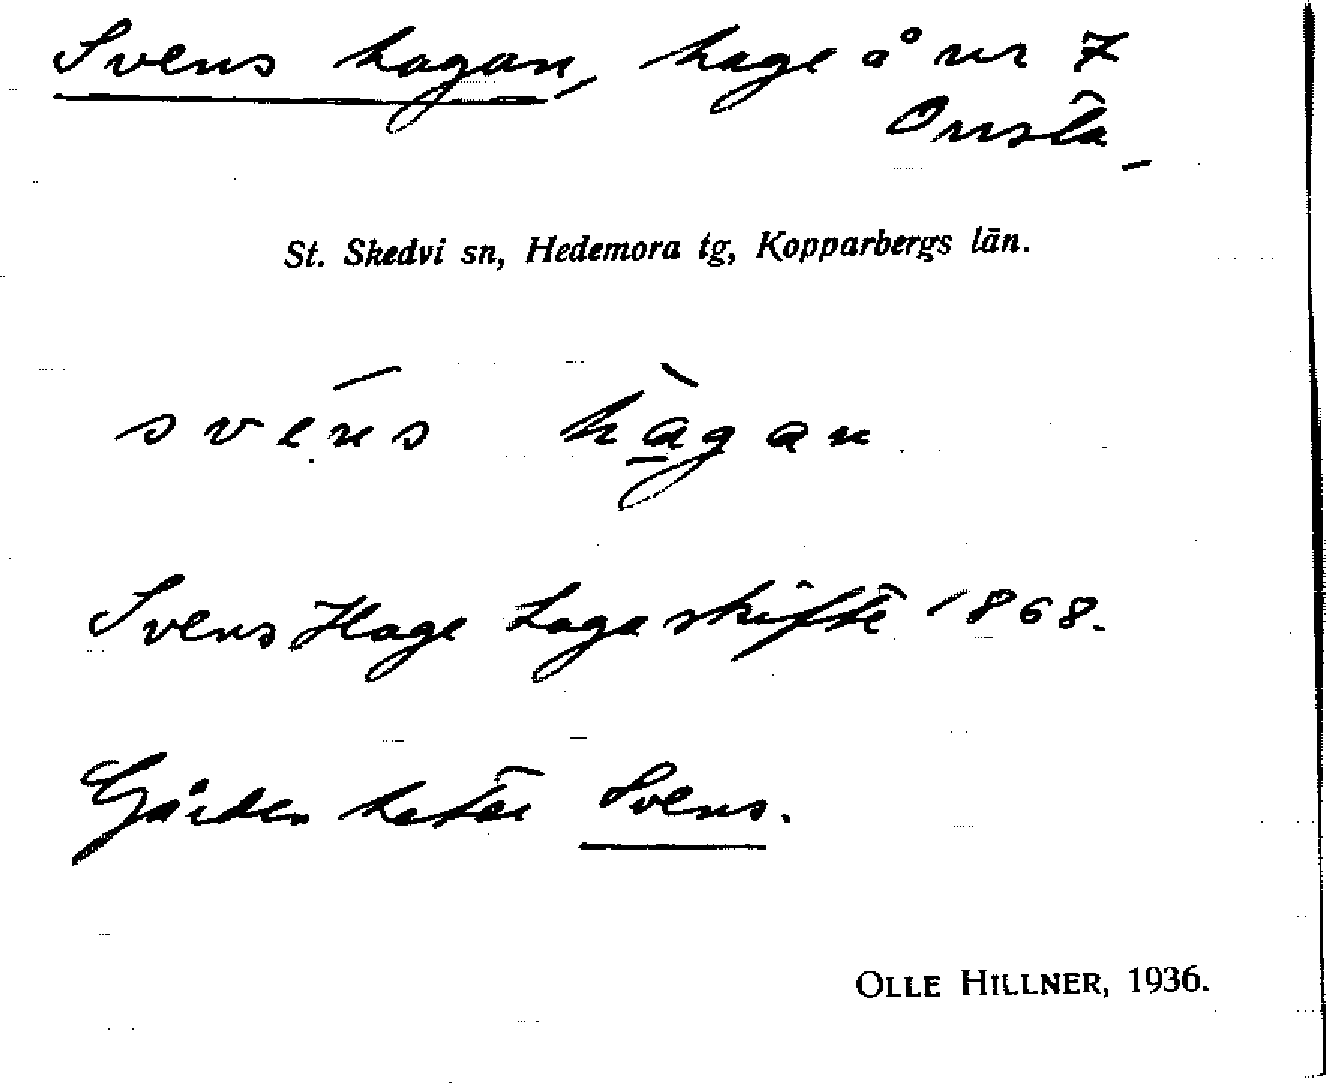 Svens hagan, hage å nr 7
Onsta
St. Skedvi sn, Hedemora tg, Kopparbergs län.
svéns hàgan
Svens Hage Laga skifte 1868.
Gården heter Svens.
OLLE HILLNER, 1936.